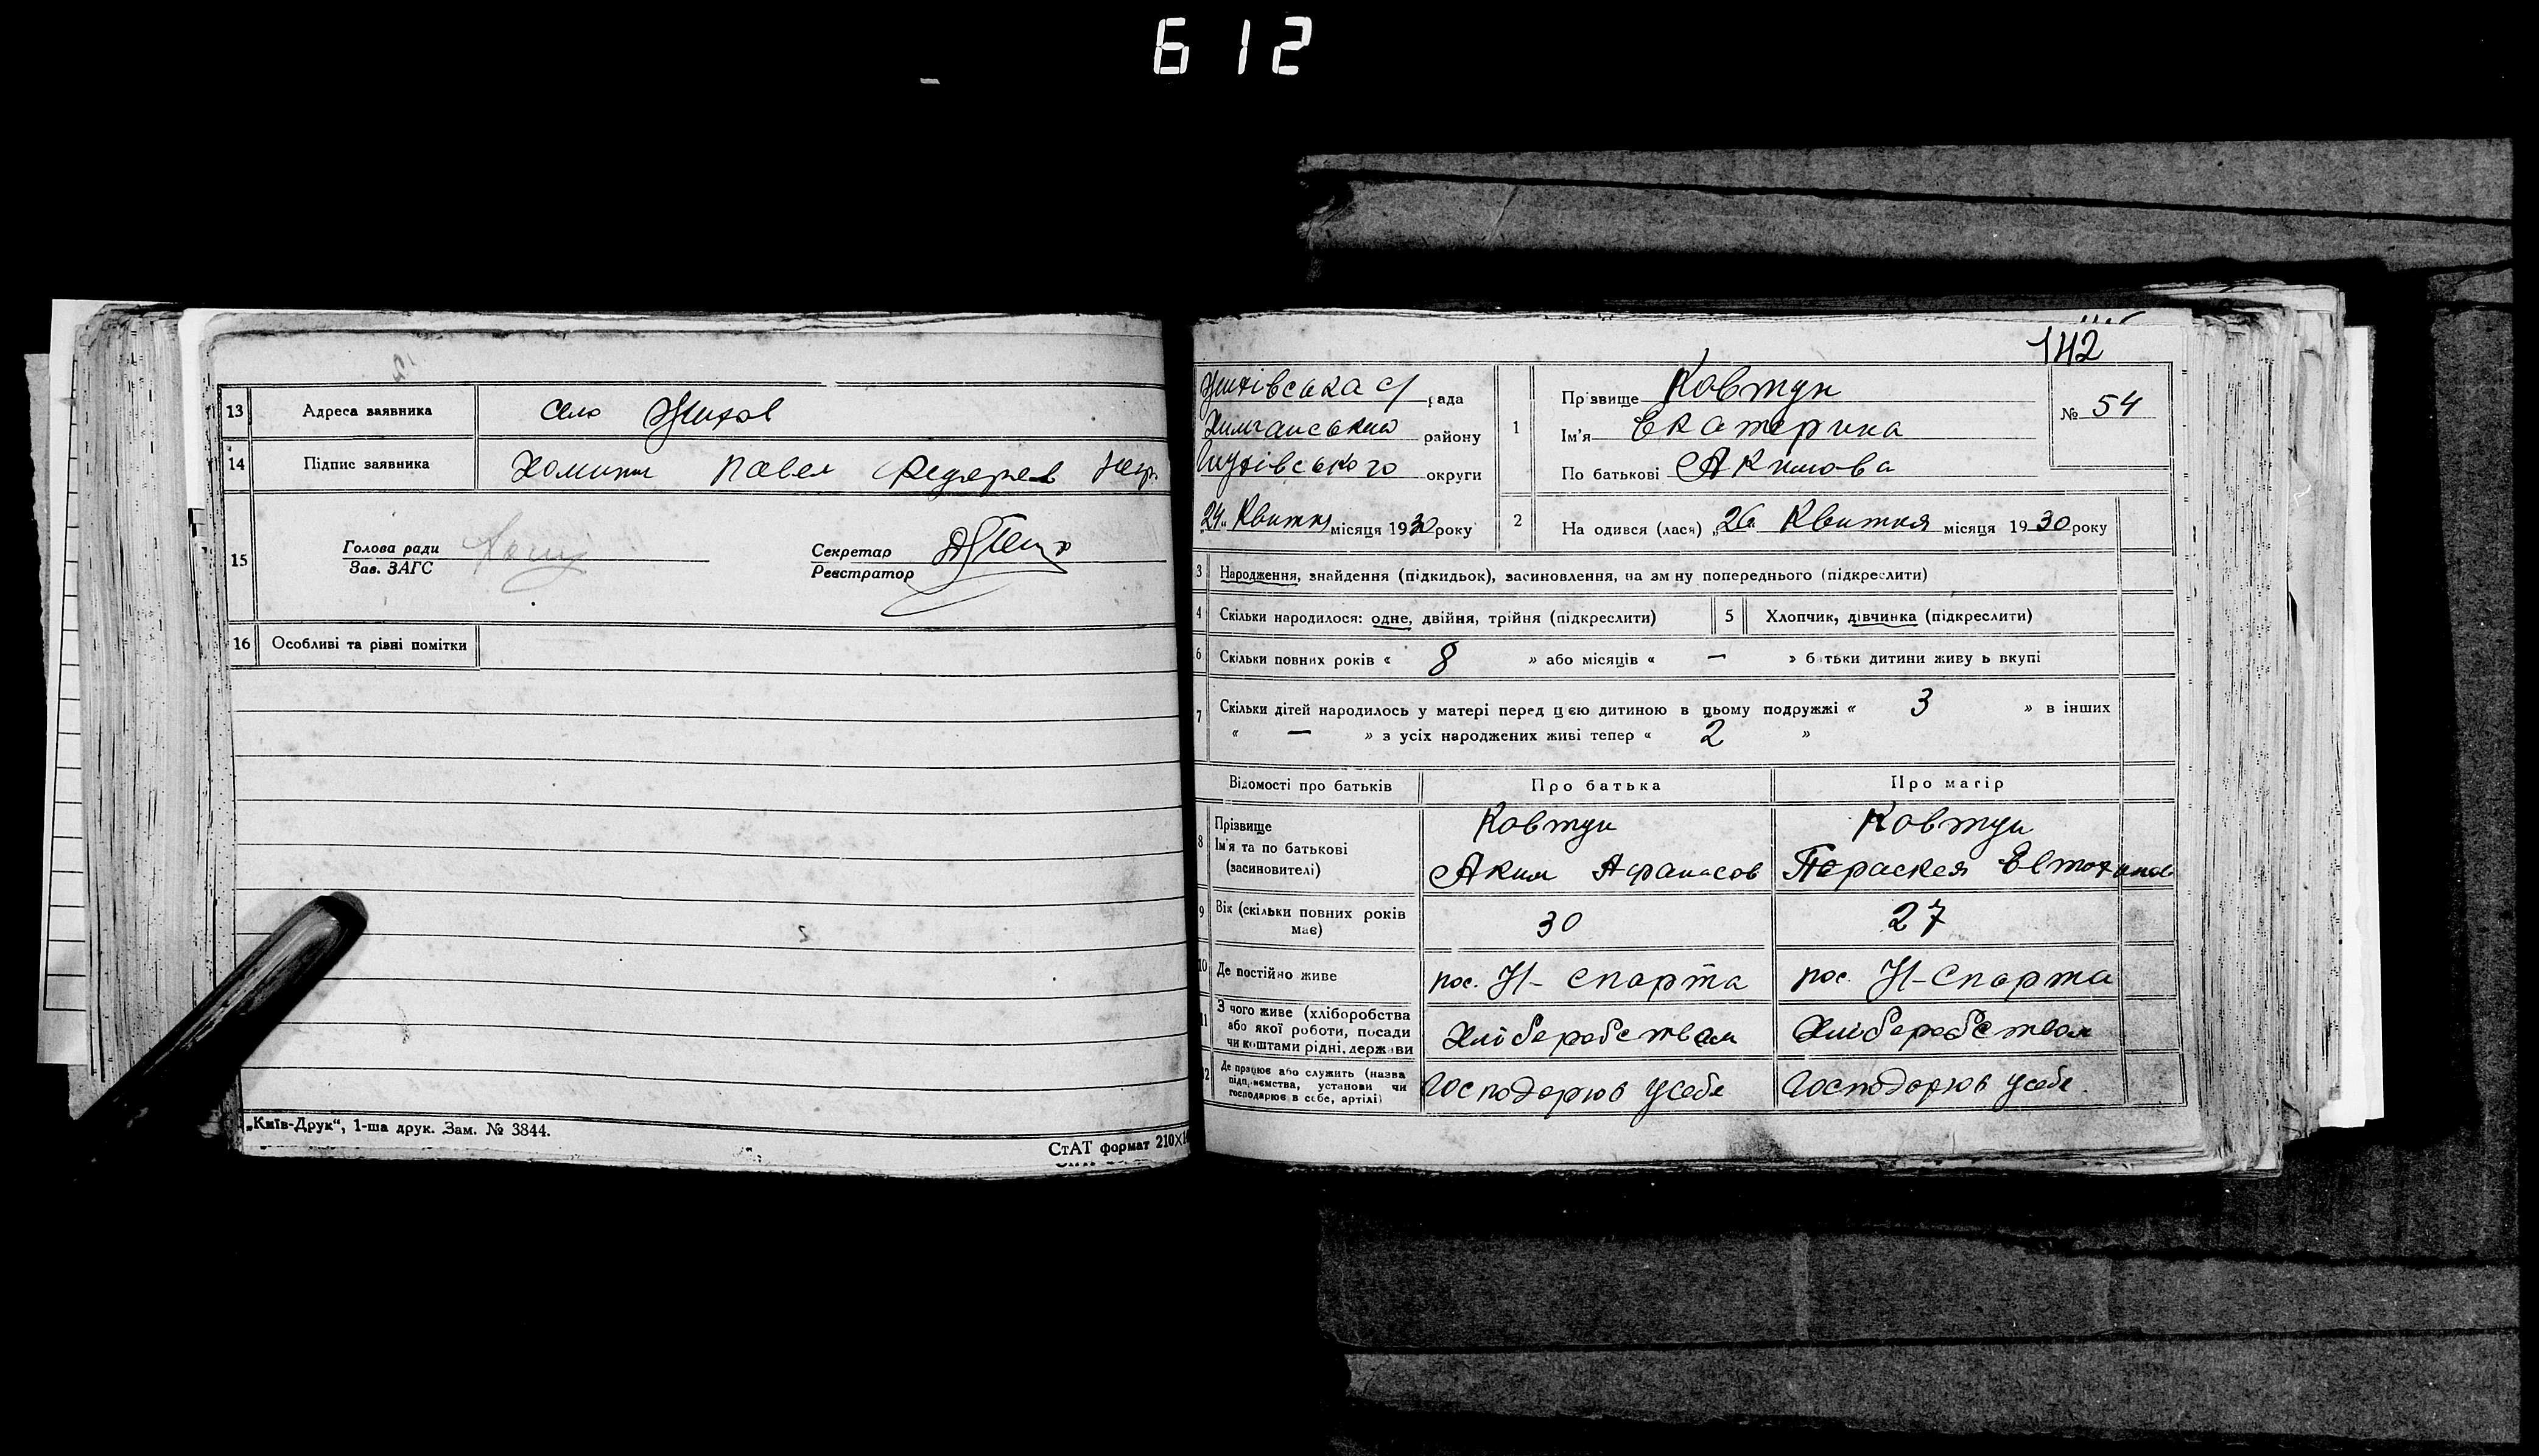 612
13 Адреса заявника село
14 Підпис заявника Павел
15 Голова ради
Зав. ЗАГС
Секретар
Реєстратор
16 Особливі та рівні помітки
„Київ-Друк“, 1-ша друк. Зам. № 3844.
СтАТ формат 210×
142
с/ рада
району
округи
Квитня місяця 1930 року
1 Прізвище Ковтун
Ім'я Екатерина
По батькові Акимова
№ 54
2 На одився (лася) „26 Квитня місяця 1930 року
3 Народження, знайдення (підкидьок), засиновлення, на зм ну попереднього (підкреслити)
4 Скільки народилося: одне, двійня, трійня (підкреслити)
5 Хлопчик, дівчинка (підкреслити)
6 Скільки повних років « 8 » або місяців « — » б тьки дитини живу ь вкупі
7 Скільки дітей народилось у матері перед цєю дитиною в цьому подружжі « 3 » в інших
« — » з усіх народжених живі тепер « 2 »
Відомості про батьків
Про батька
Про матір
8 Прізвище
Ім'я та по батькові
(засиновителі)
Ковтун
Аким Афанасов
Ковтун
Параскея
9 Вік (скільки повних років має)
30
27
10 Де постійно живе
пос. Н- Спарта
пос. Н-Спарта
11 З чого живе (хліборобства або якої роботи, посади чи коштами рідні, держави
Хліборобством
Хліборобством
12 Де працює або служить (назва підприємства, установи чи господарює в себе, артілі)
Господорюв усебе
Господорюв усебе